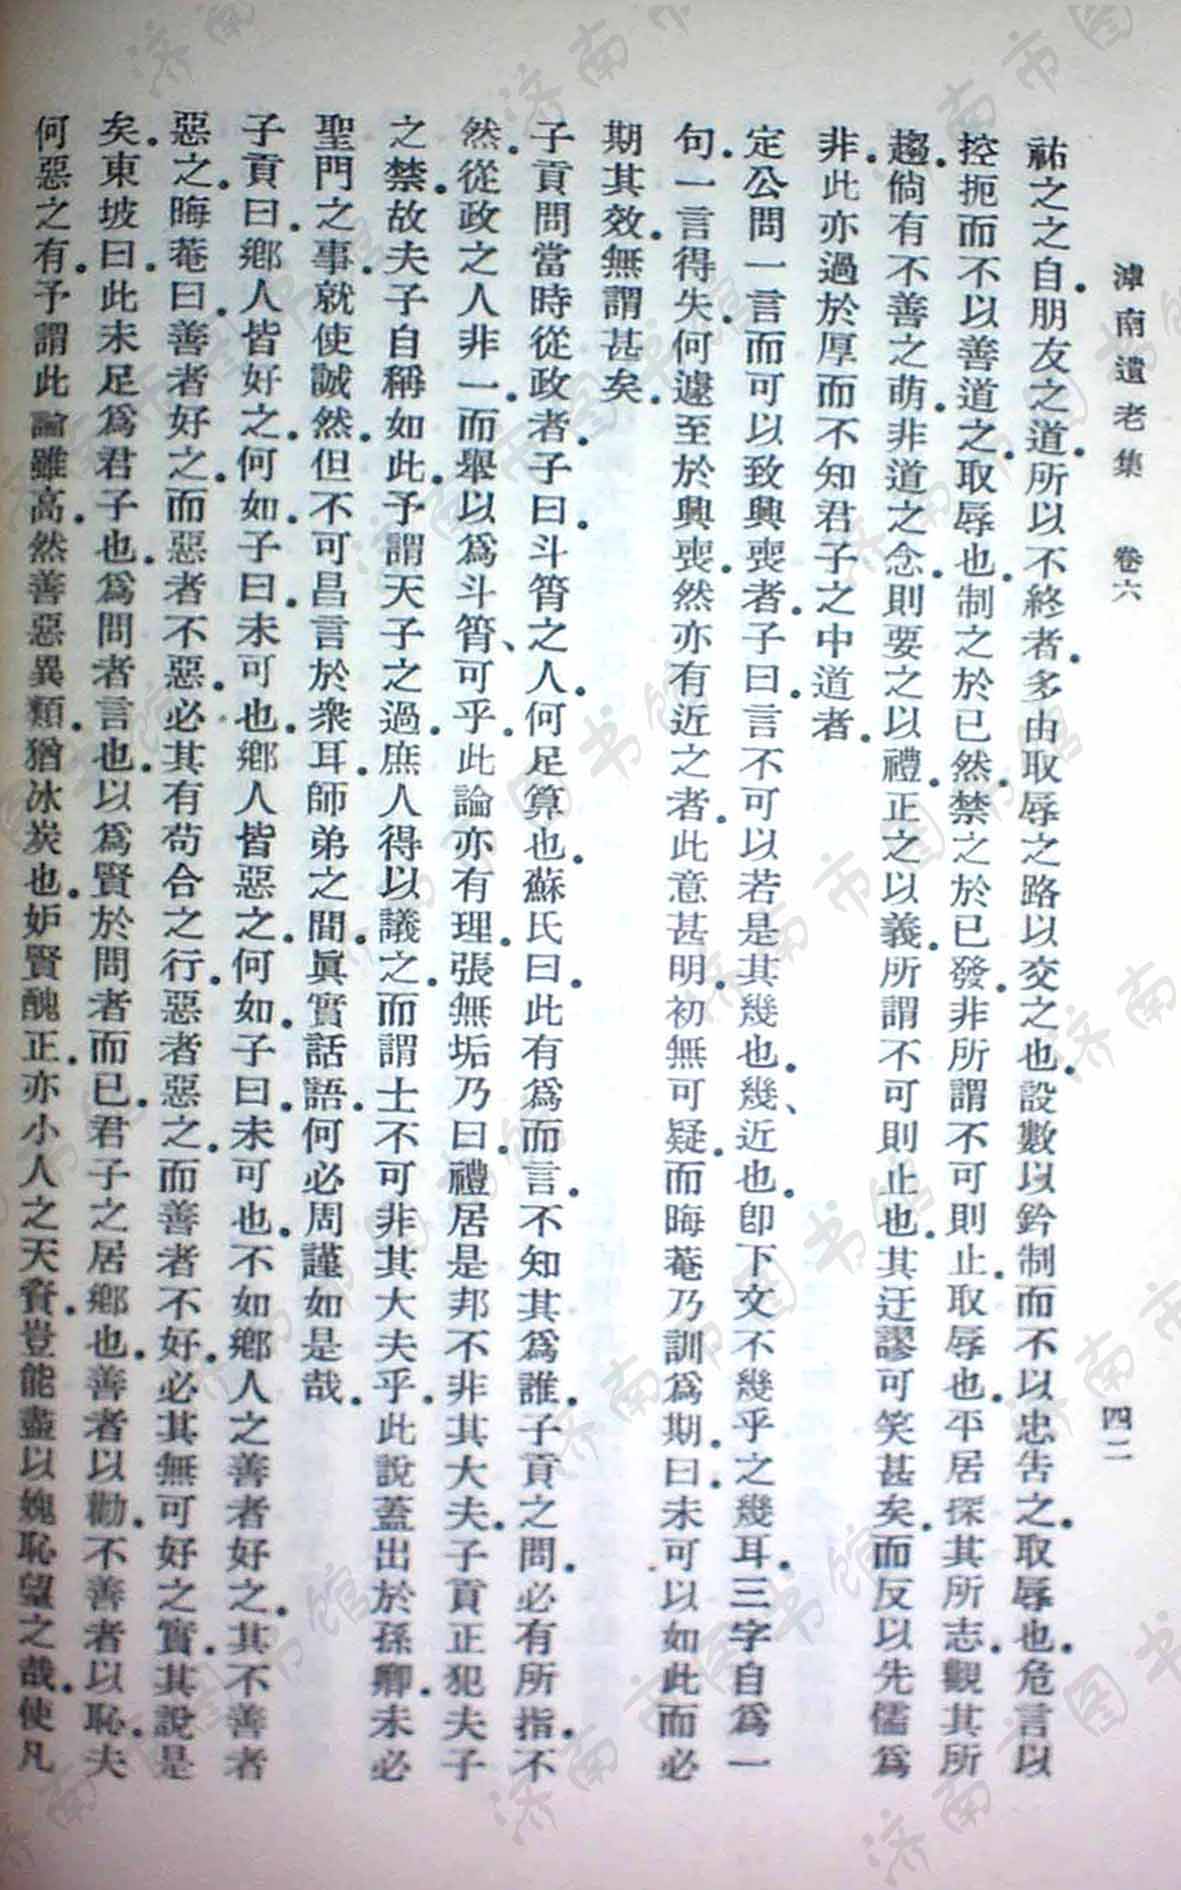 滹南遺老集　卷六　四二
祐之之自。朋友之道。所以不終者。多由取辱之路以交之也。設數以鈐制而不以忠告之。取辱也。危言以
控扼而不以善道之。取辱也。制之於已然。禁之於已發。非所謂不可則止。取辱也。平居探其所志。觀其所
趨。倘有不善之萌。非道之念。則要之以禮。正之以義。所謂不可則止也。其迂謬可笑甚矣。而反以先儒爲
非。此亦過於厚而不知君子之中道者。
定公問一言而可以致興喪者。子曰。言不可以若是其幾也。幾、近也。卽下文不幾乎之幾耳。三字自爲一
句。一言得失。何遽至於興喪。然亦有近之者。此意甚明。初無可疑。而晦菴乃訓爲期。曰。未可以如此而必
期其效。無謂甚矣。
子貢問當時從政者。子曰。斗筲之人。何足算也。蘇氏曰。此有爲而言。不知其爲誰。子貢之問。必有所指。不
然。從政之人非一。而舉以爲斗筲、可乎。此論亦有理。張無垢乃曰。禮居是邦不非其大夫。子貢正犯夫子
之禁。故夫子自稱如此。予謂天子之過。庶人得以議之。而謂士不可非其大夫乎。此說蓋出於孫卿。未必
聖門之事。就使誠然。但不可昌言於衆耳。師弟之間。眞實話語。何必周謹如是哉。
子貢曰。鄉人皆好之。何如。子曰。未可也。鄉人皆惡之。何如。子曰。未可也。不如鄉人之善者好之。其不善者
惡之。晦菴曰。善者好之。而惡者不惡。必其有苟合之行。惡者惡之。而善者不好。必其無可好之實。其說是
矣。東坡曰。此未足爲君子也。爲問者言也。以爲賢於問者而已。君子之居鄉也。善者以勸。不善者以恥。夫
何惡之有。予謂此論雖高。然善惡異類。猶冰炭也。妒賢醜正。亦小人之天資。豈能盡以媿恥望之哉。使凡